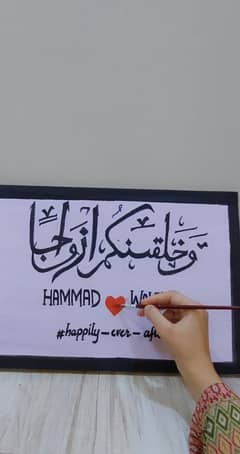 وَخلقنكم ازواجًا
HAMMAD
#happily-ever-